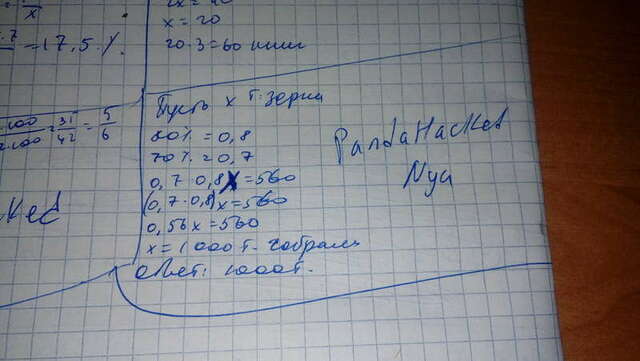 x
.7
=17,5%
2x=40
x=20
20·3=60 книг
·100
·100 = 35/42 = 5/6
ked
Пусть x т. зерна
80% = 0,8
70% = 0,7
0,7·0,8x=560
(0,7·0,8)x=560
0,56x=560
x=1000т. собрали
Ответ: 1000т.
PandaHacket
Nya